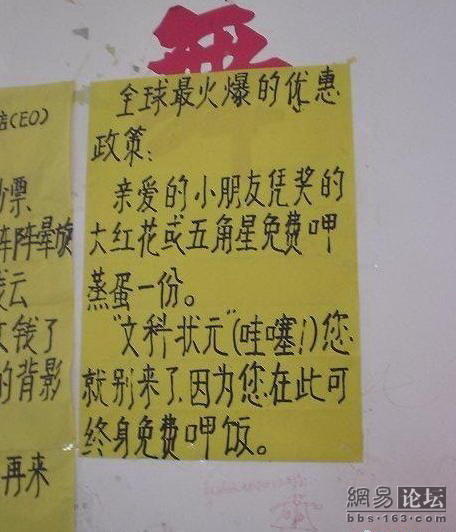 全球最火爆的优惠
政策:
亲爱的小朋友凭奖的
大红花或五角星免费呷
蒸蛋一份。
"文科状元"(哇噻!)您
就别来了,因为您在此可
终身免费呷饭。
(CEO)
票
阵阵晕旋
云
钱了
的背影
再来
網易 论坛
bbs.163.com